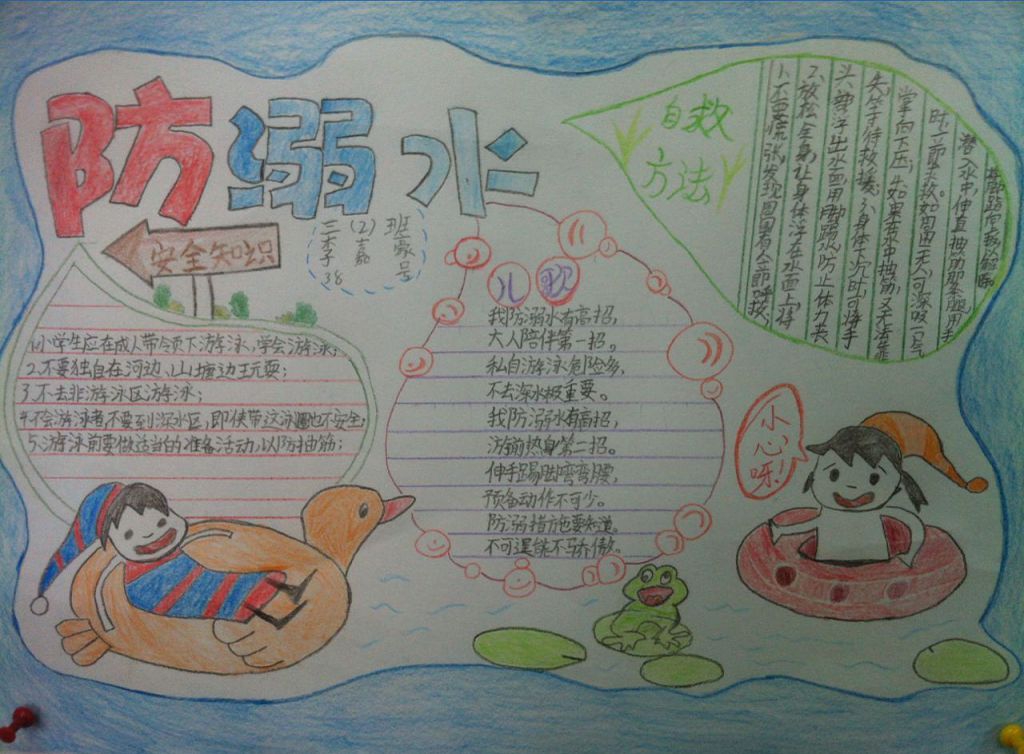 防溺水
安全知识
三(2)班
李嘉豪
38号
1.小学生应在成人带领下游泳,学会游泳;
2.不要独自在河边、山塘边玩耍;
3.不去非游泳区游泳;
4.不会游泳者不要到深水区,即使带这泳圈也不安全;
5.游泳前要做适当的准备活动,以防抽筋;
儿歌
我防溺水有高招,
大人陪伴第一招。
私自游泳危险多,
不去深水极重要。
我防溺水有高招,
游前热身第二招。
伸手踢脚弯弯腰,
预备动作不可少。
防溺措施也要知道。
不可逞能不骄傲。
自救
方法
1、不要慌张,发现周围有人立即呼救,
2、放松全身,让身体浮在水面上,将
头部浮出水面,用脚踢水,防止体力丧
失,等待救援;3、身体下沉时,可将手
掌向下压,4、如果在水中抽筋,又无法靠
时,立即求救。如周边无人,可深吸一口气
潜入水中,伸直抽筋那条腿,用手
小心呀!